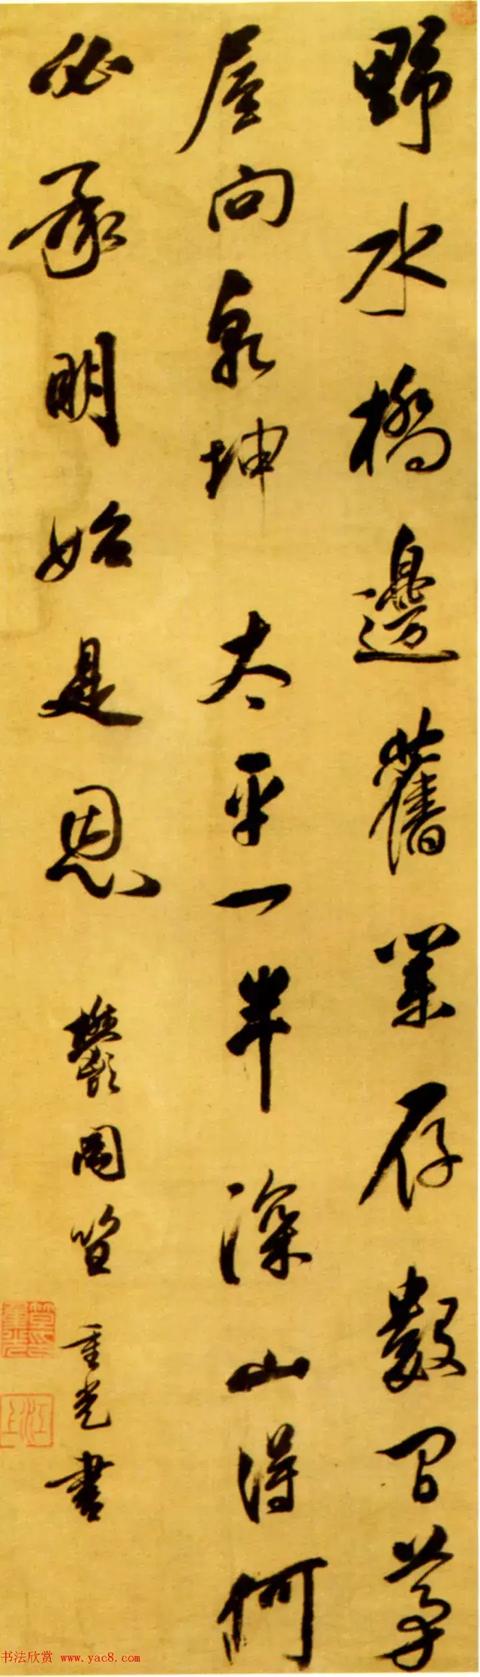 野水橋邊舊業存數間茅
屋向乾坤太平一半深山得何
必承明始是恩
鬱岡笪重光書
江上
书法欣赏 www.yac8.com